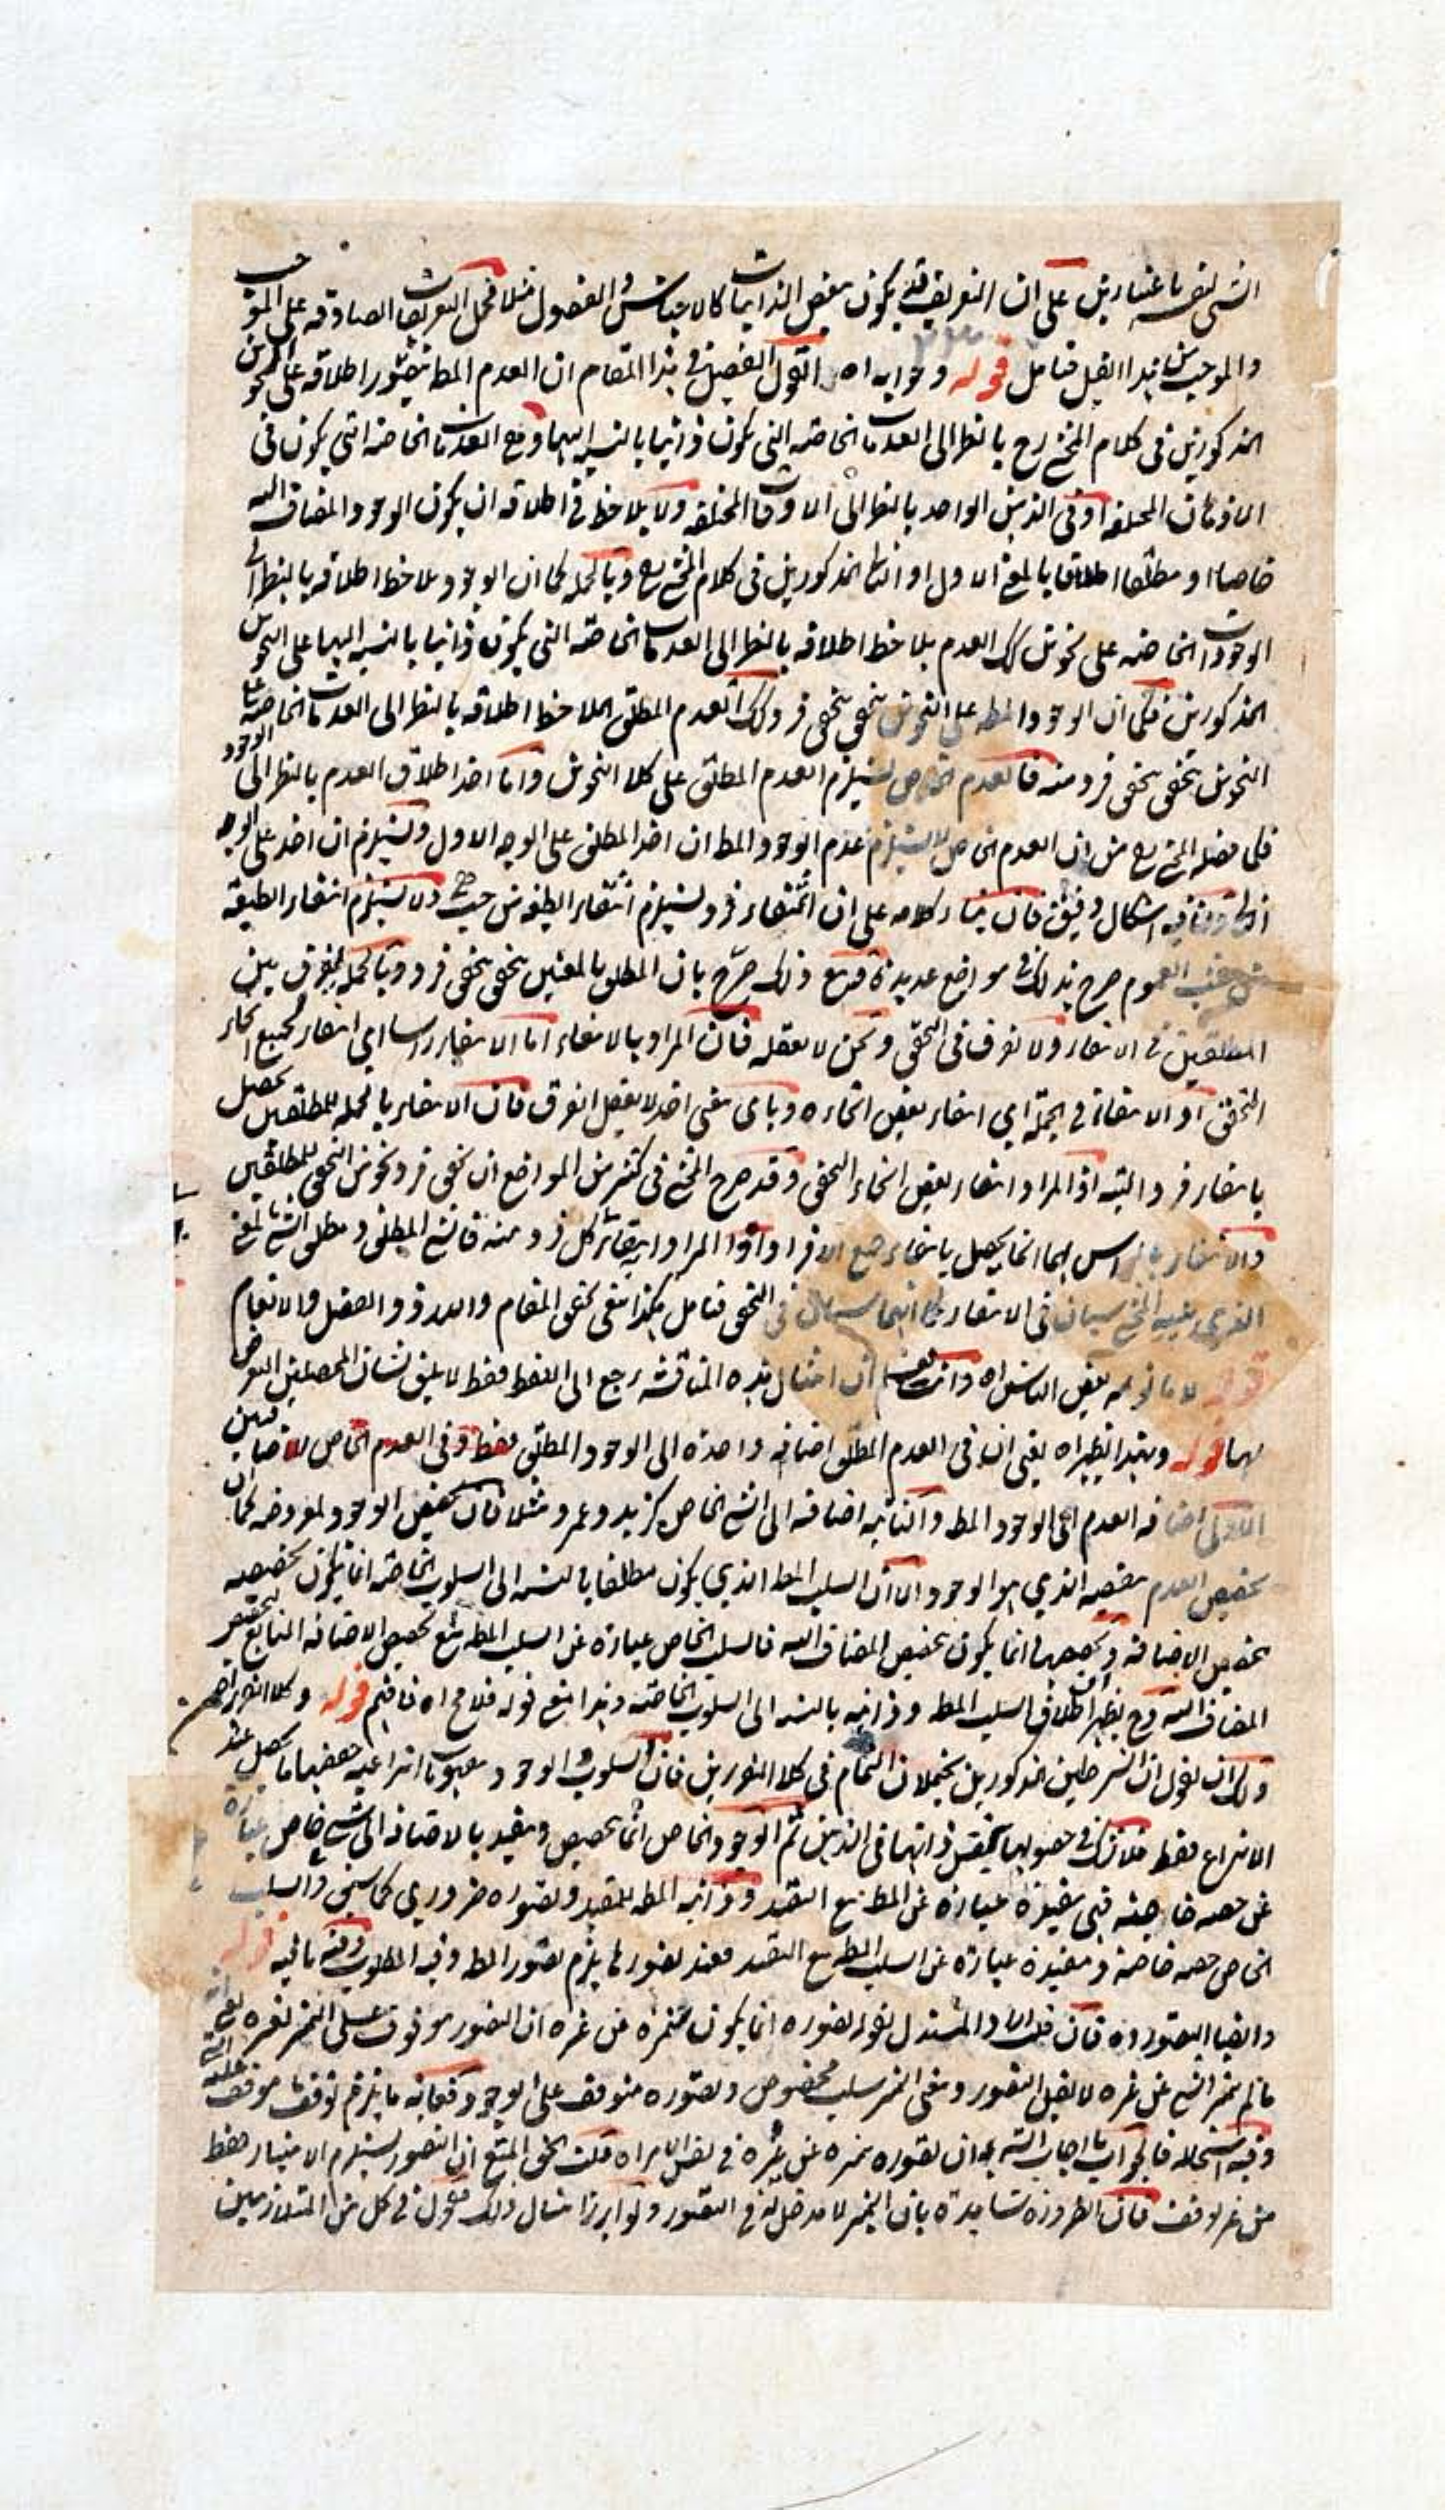 الشئ لنفسه باعتبارين على ان التعريف قد يكون ببعض الذاتيات كالاجناس والفصول مثلا فحمل التعريفات الصادقه على الموجب
والموجبتان بهذا القبيل فتامل قوله وجوابه اه اقول التفصيل في هذا المقام ان العدم المط يتصور اطلاقه على النحوين
المذكورين في كلام المحشي رح بالنظر الى العدمات الخاصه التي يكون ذاتيا بالنسبه اليها وهي العدمات الخاصه التي يكون في
الاذهان المختلفه او في الذهن الواحد بالنظر الى الاوقات المختلفه ولا يلاحظ في اطلاقه ان يكون الوجود المضاف اليه
خاصا او مطلقا اطلاقا بالمعنى الاول او الثاني المذكورين في كلام المحشي رح وبالجمله كما ان الوجود يلاحظ اطلاقه بالنظر الى
الوجودات الخاصه على نحوين كك العدم يلاحظ اطلاقه بالنظر الى العدمات الخاصه التي يكون ذاتيا بالنسبه اليها على النحوين
المذكورين فكما ان الوجود المط على النحوين يتحقق بتحقق فرد كك العدم المطلق الملاحظ اطلاقه بالنظر الى العدمات الخاصه على
النحوين يتحقق بتحقق فرد منه فالعدم الخاص يستلزم العدم المطلق على كلا النحوين واما اخذ اطلاق العدم بالنظر الى الوجود
فكما فصله المحشي رح من ان العدم الخاص لا يستلزم عدم الوجود المط ان اخذ المطلق على الوجه الاول ويستلزم ان اخذ على الوجه
الثاني وفيه اشكال دقيق فان بناء كلامه على ان انتفاء فرد يستلزم انتفاء الطبيعه من حيث هي ولا يستلزم انتفاء الطبيعه
من حيث العموم صرح بذلك في مواضع عديدة ومع ذلك صرح بان المطلق بالمعنيين يتحقق بتحقق فرد وبالجمله يفرق بين
المطلقين في الانتفاء ولا يفرق في التحقق ونحن لا نعقله فان المراد بالانتفاء اما الانتفاء راسا اي انتفاء جميع انحاء
التحقق او الانتفاء في الجمله اي انتفاء بعض انحاءه وباي معنى اخذ لا يعقل الفرق فان الانتفاء بالجمله للمطلقين يحصل
بانتفاء فرد البته اذ المراد انتفاء بعض انحاء التحقق وقد صرح المحشي في كثير من المواضع ان تحقق فرد نحو من التحقق للمطلقين
والانتفاء بالراس لهما انما يحصل بانتفاء جميع الافراد اذ المراد انتفاء كل فرد منه فالشئ المطلق ومطلق الشئ بالمعنى
الذي عليه المحشي سيان في الانتفاء كما انهما سيان في التحقق فتامل هكذا ينبغي تحقيق المقام والله ذو الفضل والانعام
قوله لا ما توهمه بعض الناس اه وانت تعلم ان امثال هذه المناقشه يرجع الى اللفظ فقط لا يليق بشان المحصلين التعرض
لها قوله وبهذا يظهر اه يعني ان في العدم المطلق اضافه واحدة الى الوجود المطلق فقط وفي العدم الخاص اضافتين
الاولى اضافه العدم الى الوجود المط والثانيه اضافه الى الشئ الخاص كزيد وعمرو مثلا فان تخصيص الوجود لمعروضه كما ان
تخصيص العدم بتخصيصه الذي هو الوجود الا ان السلب المط الذي يكون مطلقا بالنسبه الى السلوب الخاصه انما يكون تخصيصه
بتخصيص الاضافه وتخصيصها انما يكون بتخصيص المضاف اليه فالسلب الخاص عباره عن السلب المط مع تخصيص الاضافه التابع لتخصيص
المضاف اليه وح يظهر اطلاق السلب المط وذاتيه بالنسبه الى السلوب الخاصه وبهذا اندفع قوله فلا مح اه فافهم قوله وكلا التقريرين اه
ولك ان تقول ان الشرطين مذكورين يتحملان التمام في كلا التقريرين فان السلوب والوجود مفهومات انتزاعيه حقيقتها ما يحصل عند
الانتزاع فقط فلا شك في حصولها بنفس ذاتها في الذهن ثم الوجود الخاص انما يحصص ويقيد بالاضافه الى شئ خاص عبارة
عن حصه خارجيه فهي مقيدة عبارة عن المط مع التقييد وذاتيه المط للمقيد وتصوره ضروري كما سيجئ والسلب
الخاص حصه خاصه ومقيدة عبارة عن السلب المط مع التقييد فعند تصورها يلزم تصور المط وفيه المطلوب وفيه ما فيه قوله
وايضا التصور اه فان قلت المستدل بقوله تصوره انما يكون متميزه عن غيره ان التصور موقوف على التميز لغيره يعني انه
ما لم يتميز الشئ عن غيره لا يقبل التصور ومعنى التميز سلب مخصوص وتصوره متوقف على الوجود فغايه ما يلزم توقف موقف عليه الشئ
وفيه استحاله فالجواب ما اجاب الشه به ان تصوره تميزه عن غيره في نفس الامر اه قلت الحق المتبع ان التصور يستلزم الامتياز فقط
من غير توقف فان الضرورة شاهدة بان التميز لا مدخل له في التصور ولو ابرز امثال ذلك تقول في كل من المتلازمين